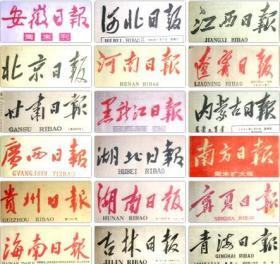 安徽日報
周末刊
河北日报
HEBEI RIBAO
江西日报
JIANGXI RIBAO
北京日报
河南日報
HENAN RIBAO
遼寧日报
LIAONING RIBAO
甘肃日报
GANSU RIBAO
黑龙江日报
内蒙古日报
廣西日报
GVANGJSIH YIZBAU
湖北日報
HUBEI RIBAO
南方日报
周末扩大版
貴州日报
GUIZHOU RIBAO
湖南日报
HUNAN RIBAO
寧夏日报
NINGXIA RIBAO
海南日报
吉林日报
JILIN RIBAO
青海日报
QINGHAI RIBAO